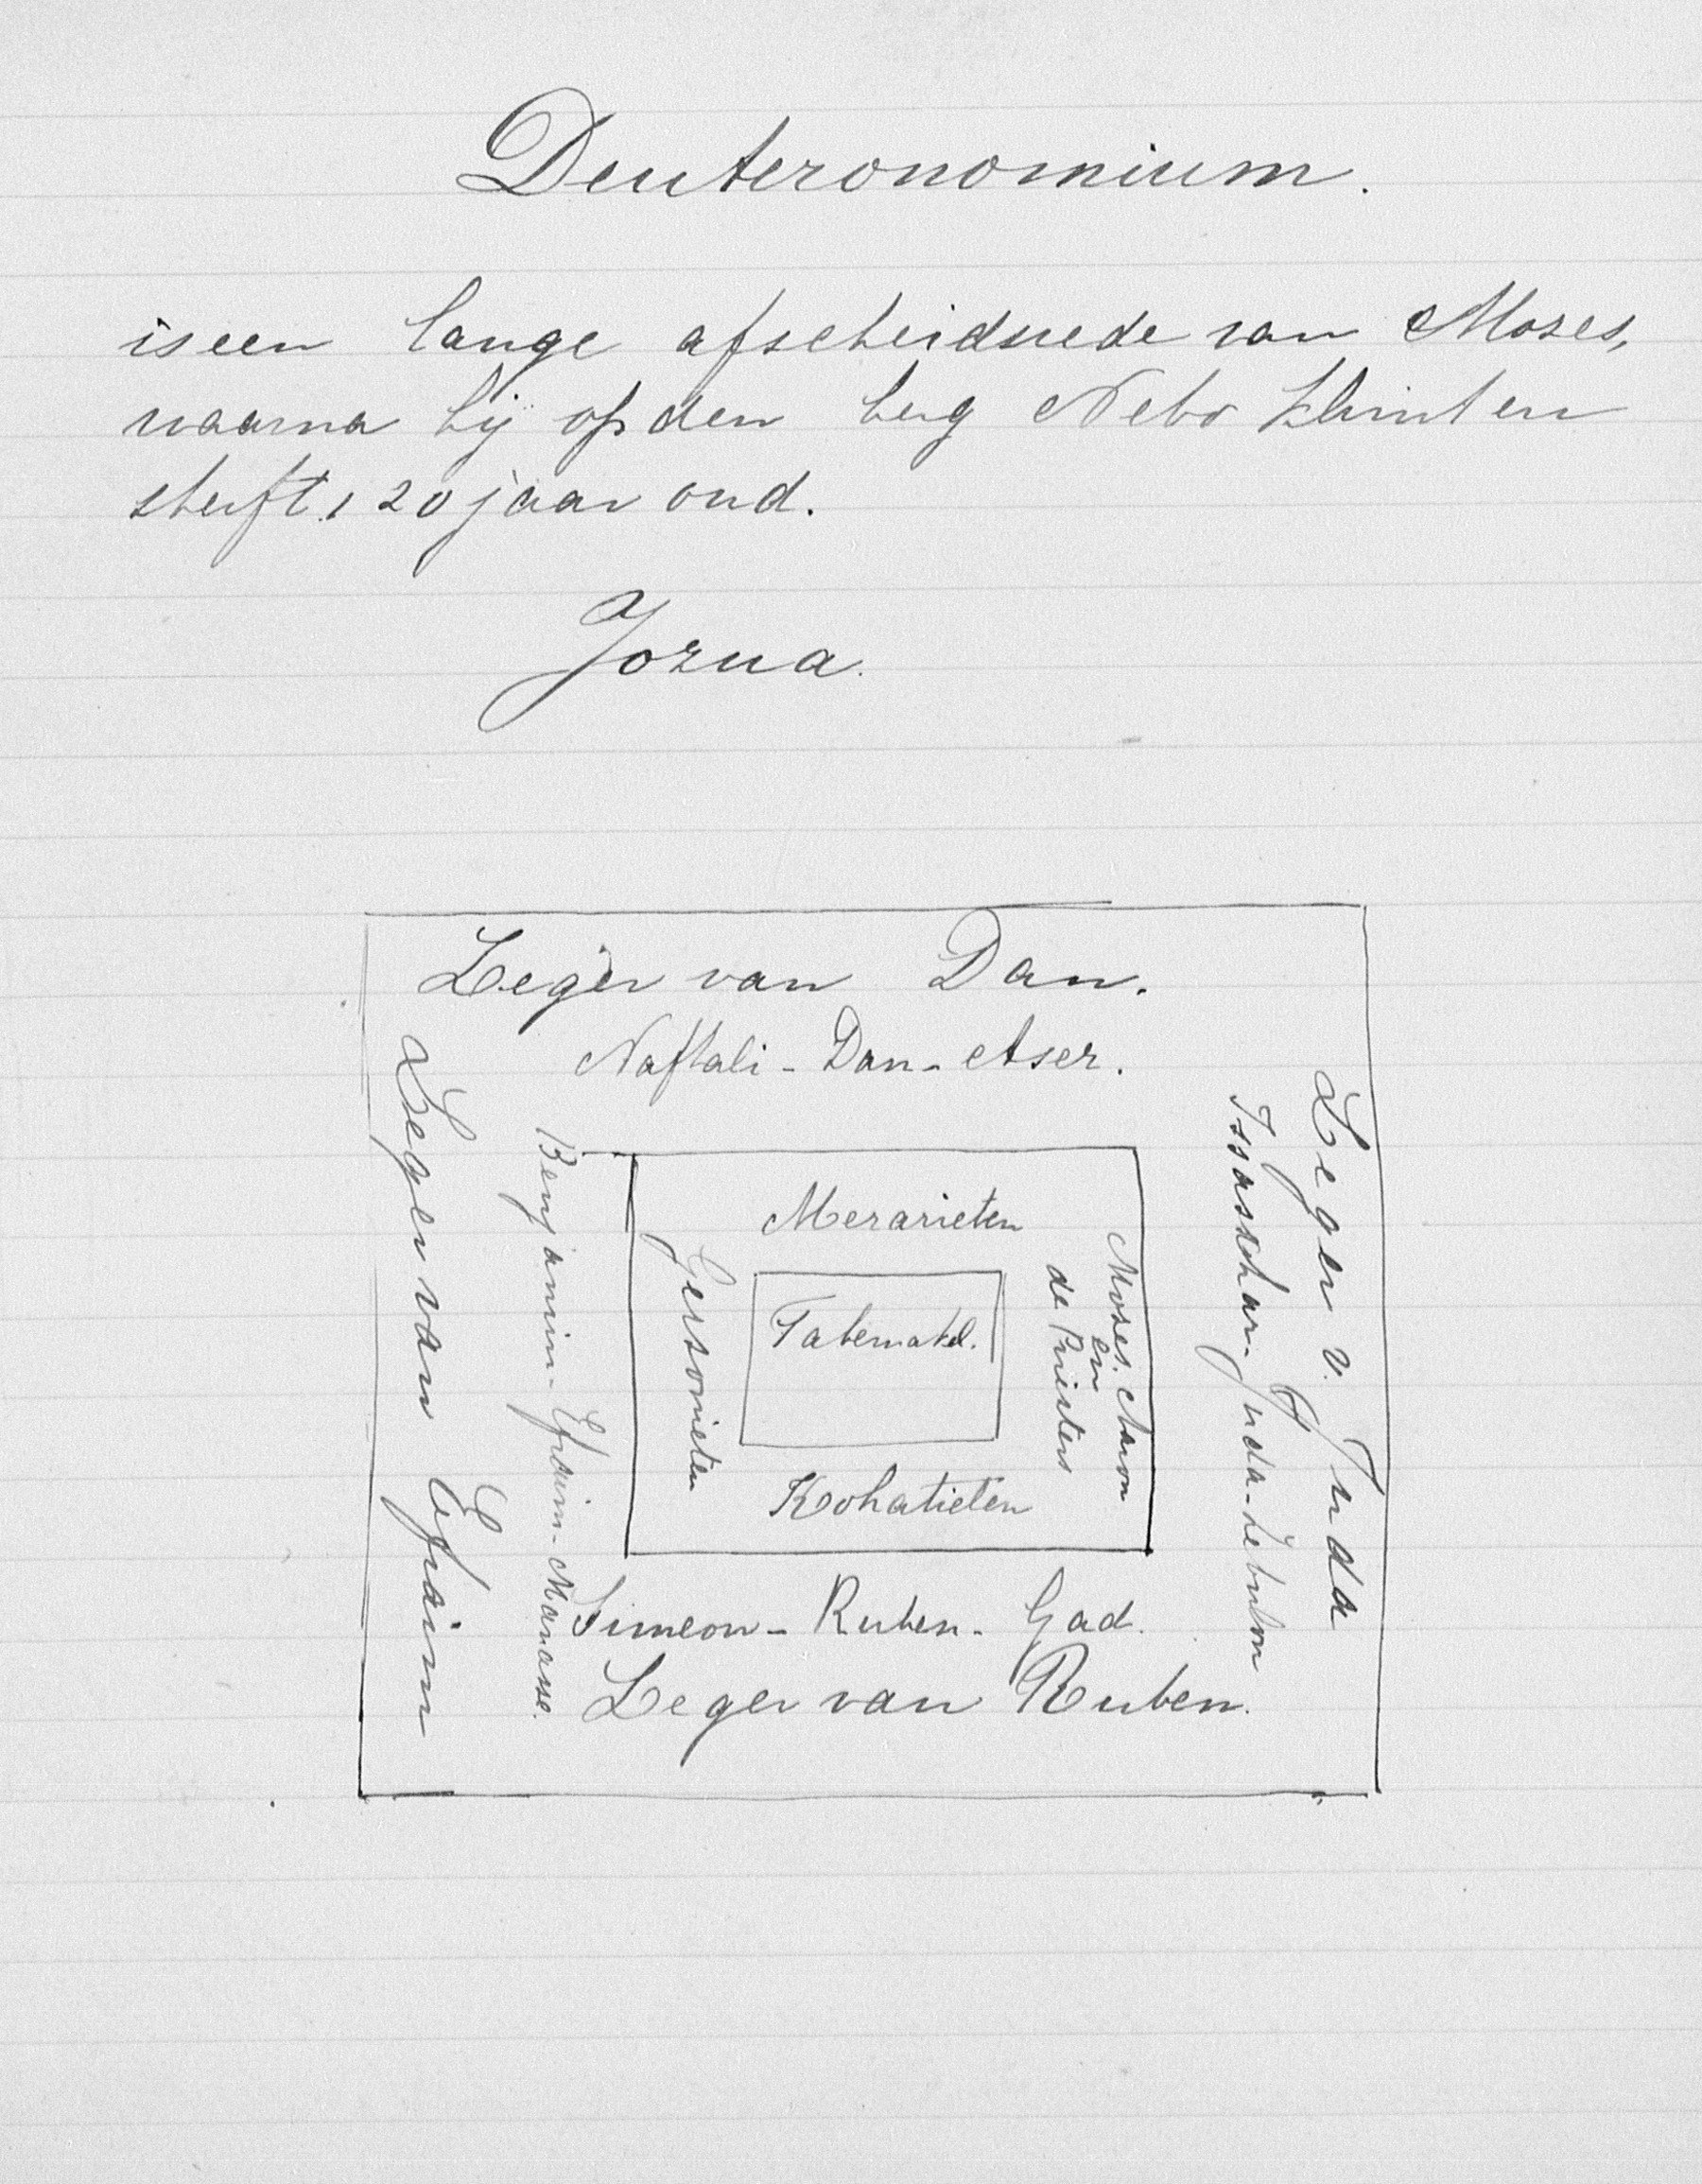 Deuteronomium.
is een lange afscheidsrede van Mozes,
waarna hij op den berg Nebo klimt en
sterft, 120 jaar oud.
Jozua.
Leger van Dan.
Naftali - Dan - Aser.
Leger van Efraim
Benjamin - Efraim - Manasse.
Merarieten
Gersonieten
Tabernakel.
Mozes. Aaron
en
de Priesters
Kohatieten
Issaschar - Juda - Zebulon
Leger v. Juda
Simeon - Ruben - Gad.
Leger van Ruben.